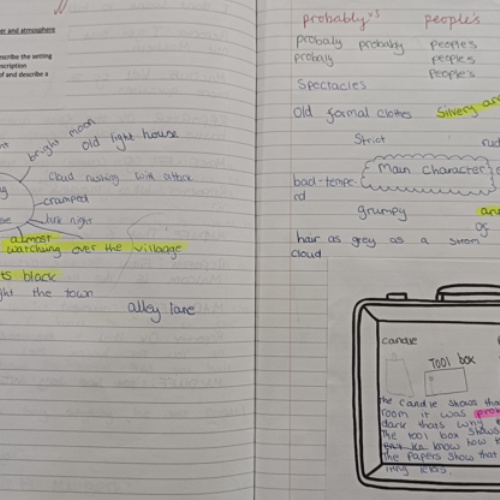 er and atmosphere
escribe the setting
scription
of and describe a
bright moon
old light house
cloud rushing with attack
cramped
dark night
almost
watching over the villaage
ts black
ght the town
alley lane
probably x3 people's
probaly probably people's
probaly people's
people's
Spectacles
Old formal clothes Silvery and
Strict
main character
bad-tempe-
rd
grumpy
hair as grey as a strom
cloud
candle
Tool box
the candle shows tha
room it was pro
dark thats why
The tool box shows
know how t
The papers show that